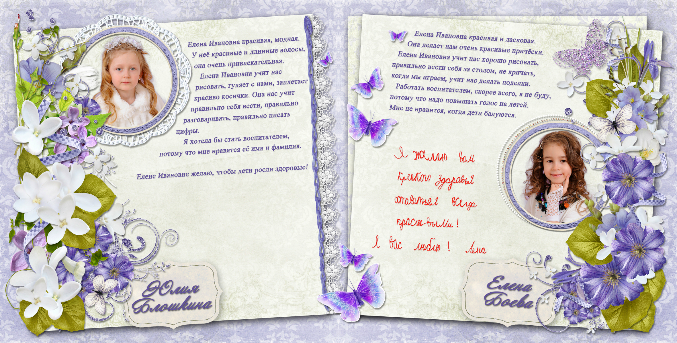 Елена Ивановна красивая, модная.
У неё красивые и длинные волосы,
она очень привлекательная.
Елена Ивановна учит нас
рисовать, гуляет с нами, заплетает
красиво косички. Она нас учит
правильно себя вести, правильно
разговаривать, правильно писать
цифры.
Я хотела бы стать воспитателем,
потому что мне нравится её имя и фамилия.
Елене Ивановне желаю, чтобы дети росли здоровые!
Юлия
Блошкина
Елена Ивановна красивая и ласковая.
Она делает нам очень красивые причёски.
Елена Ивановна учит нас хорошо рисовать,
правильно вести себя за столом, не кричать,
когда мы играем, учит нас делать поделки.
Работать воспитателем, скорее всего, я не буду,
потому что надо повышать голос на детей.
Мне не нравится, когда дети балуются.
Я желаю вам
крепкого здоровья
оставаться всегда
красивыми!
Я Вас люблю!
Елена
Боева